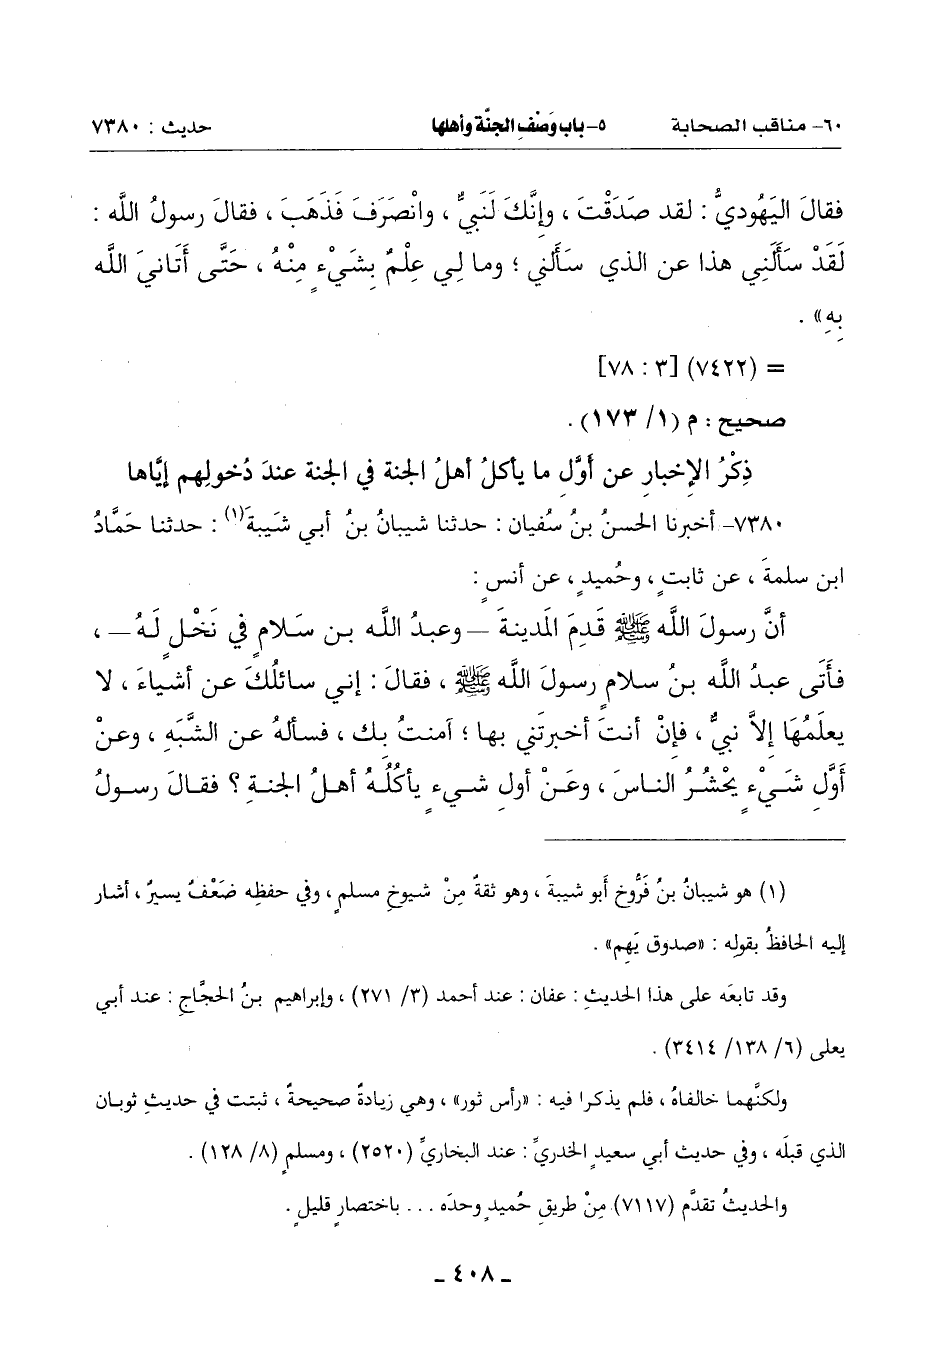 ٦٠- مناقب الصحابة ٥- باب وَصْفِ الجنَّة وأهلها حديث : ٧٣٨٠
فقالَ اليَهُوديُّ : لقد صَدَقْتَ ، وإِنَّكَ لَنَبِيٌّ ، وانْصَرَفَ فَذَهَبَ ، فقالَ رسولُ اللَّه :
لَقَدْ سَأَلَنِي هذا عن الذي سَأَلني ؛ وما لِي عِلْمٌ بِشَيْءٍ مِنْهُ ، حَتَّى أَتَانيَ اللَّه
بِهِ» .
= (٧٤٢٢) [٣ : ٧٨]
صحيح : م (١/ ١٧٣) .
ذِكْرُ الإِخبارِ عن أوَّلِ ما يأكلُ أهلُ الجنة في الجنة عندَ دُخولِهِم إيَّاها
٧٣٨٠- أخبرنا الحسنُ بنُ سُفيان : حدثنا شيبانُ بنُ أبي شَيبةَ(١) : حدثنا حَمَّادُ
ابن سلمةَ ، عن ثابتٍ ، وحُميدٍ ، عن أنسٍ :
أنَّ رسولَ اللَّه ﷺ قَدِمَ المَدينةَ – وعبدُ اللَّه بن سَلامٍ في نَخْلٍ لَهُ – ،
فأَتَى عبدُ اللَّه بنُ سلامٍ رسولَ اللَّه ﷺ ، فقالَ : إني سائلُكَ عن أشياءَ ، لا
يعلَمُهَا إلاَّ نبيٌّ ، فإنْ أنتَ أخبرتَني بها ؛ آمنتُ بِك ، فسألهُ عن الشَّبَهِ ، وعنْ
أوَّلِ شَيْءٍ يحْشُرُ الناسَ ، وعَنْ أولِ شيءٍ يأكُلُهُ أهلُ الجنةِ ؟ فقالَ رسولُ
(١) هو شيبانُ بنُ فَرُّوخ أبو شيبةَ ، وهو ثقةٌ مِنْ شيوخِ مسلمٍ ، وفي حفظِه ضَعْفٌ يسيرٌ ، أشار
إليه الحافظُ بقولِه : «صدوق يَهِم» .
وقد تابعَه على هذا الحديثِ : عفان : عند أحمد (٣/ ٢٧١) ، وإبراهيم بنُ الحجَّاجِ : عند أبي
يعلى (٦/ ١٣٨/ ٣٤١٤) .
ولكنَّهما خالفاهُ ، فلم يذكرا فيه : «رأس ثور» ، وهي زيادةٌ صحيحةٌ ، ثبتت في حديثِ ثوبان
الذي قبلَه ، وفي حديث أبي سعيدٍ الخدريِّ : عند البخاريِّ (٢٥٢٠) ، ومسلمٍ (٨/ ١٢٨) .
والحديثُ تقدَّم (٧١١٧) مِنْ طريقِ حُميدٍ وحدَه ... باختصارٍ قليلٍ .
ـ ٤٠٨ ـ